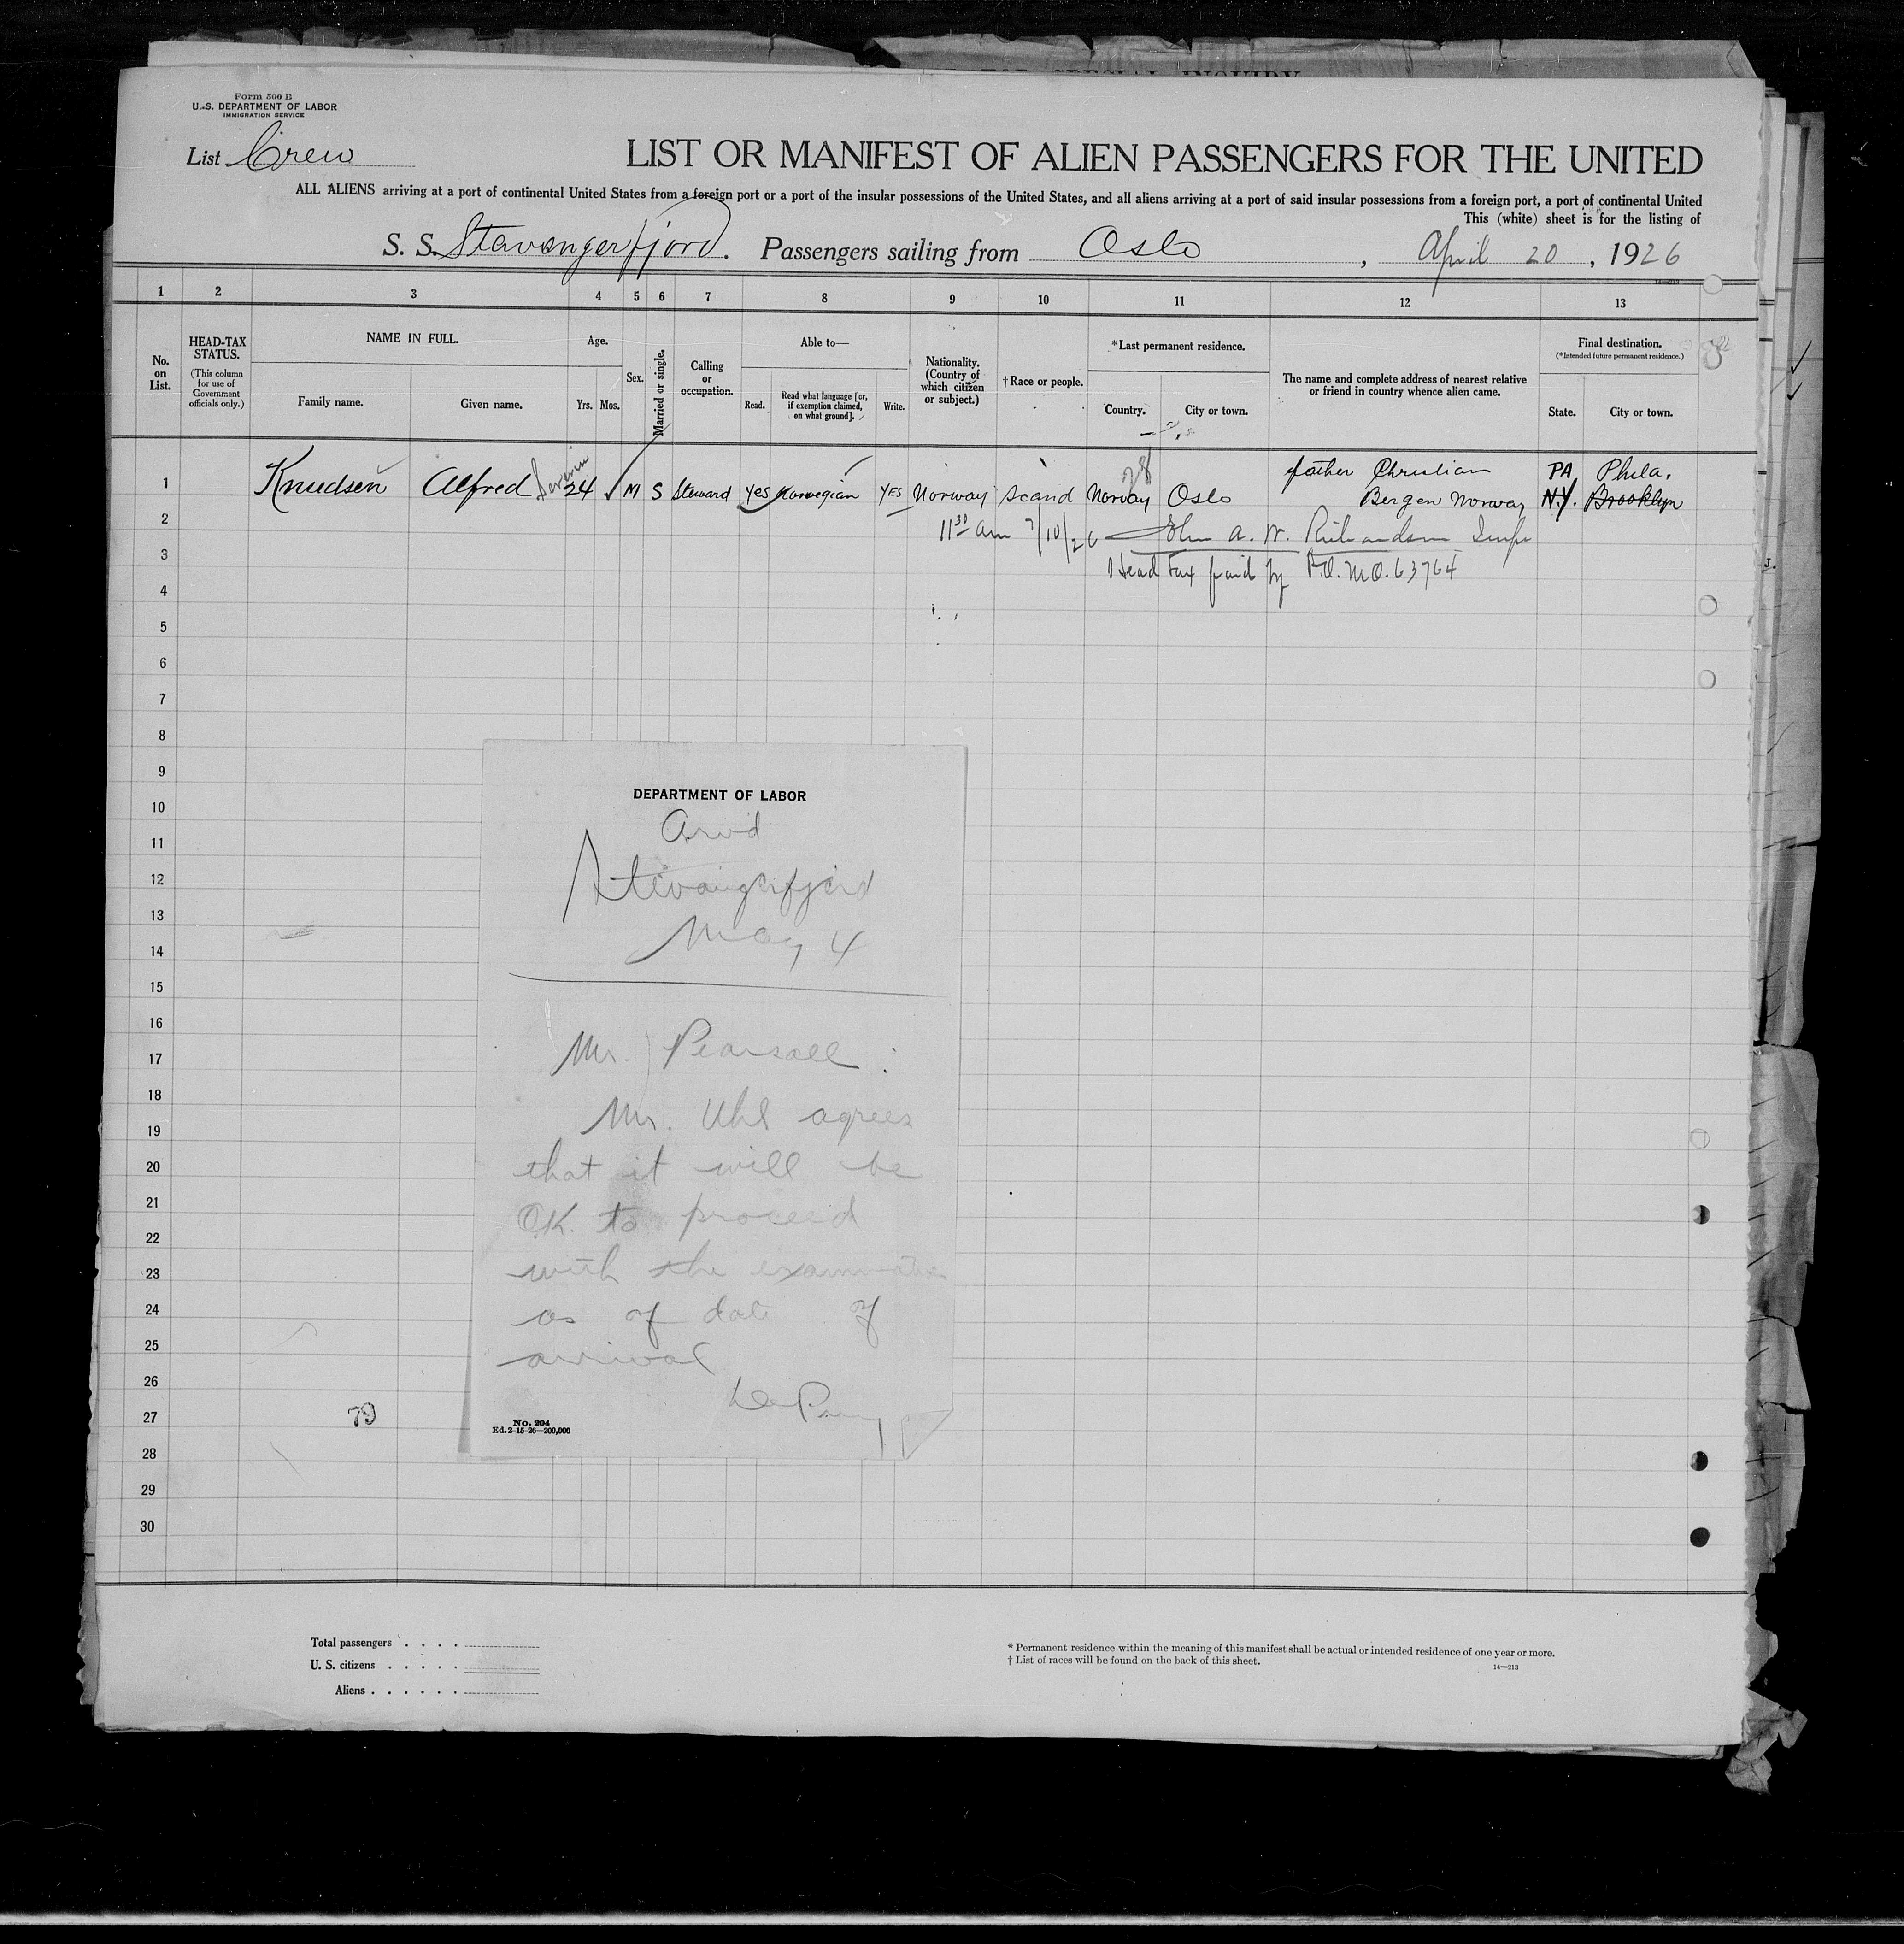 FOR SPECIAL INQUIRY
Form 500 B
U. S. DEPARTMENT OF LABOR
IMMIGRATION SERVICE
List Crew
LIST OR MANIFEST OF ALIEN PASSENGERS FOR THE UNITED
ALL ALIENS arriving at a port of continental United States from a foreign port or a port of the insular possessions of the United States, and all aliens arriving at a port of said insular possessions from a foreign port, a port of continental United
This (white) sheet is for the listing of
S. S. Stavangerfjord. Passengers sailing from Oslo, April 20, 1926
1 2 3 4 5 6 7 8 9 10 11 12 13
No. on List.
HEAD-TAX STATUS.
(This column for use of Government officials only.)
NAME IN FULL.
Family name.
Given name.
Age.
Yrs. Mos.
Sex.
Married or single.
Calling or occupation.
Able to—
Read.
Read what language [or, if exemption claimed, on what ground].
Write.
Nationality. (Country of which citizen or subject.)
† Race or people.
*Last permanent residence.
Country.
City or town.
The name and complete address of nearest relative or friend in country whence alien came.
Final destination.
(*Intended future permanent residence.)
State.
City or town.
1 Knudsen Alfred Severin 24 M S Steward Yes Norwegian Yes Norway Scand Norway Oslo father Christian PA Phila.
Bergen Norway N.Y. Brooklyn
2 11 30 am 7/10/26 John A. W. Richardson Inspr
3 Head Tax paid by P.O. M.O. 63764
4
5
6
7
8
9
10
11
12
13
14
15
16
17
18
19
20
21
22
23
24
25
26
27
28
29
30
79
DEPARTMENT OF LABOR
Arvd
Stavangerfjord
May 4
Mr. Pearsall:
Mr. Uhl agrees
that it will be
OK. to proceed
with the examination
as of date of
arrival
No. 204
Ed. 2-15-26—200,000
Total passengers
U. S. citizens
Aliens
* Permanent residence within the meaning of this manifest shall be actual or intended residence of one year or more.
† List of races will be found on the back of this sheet.
14—213